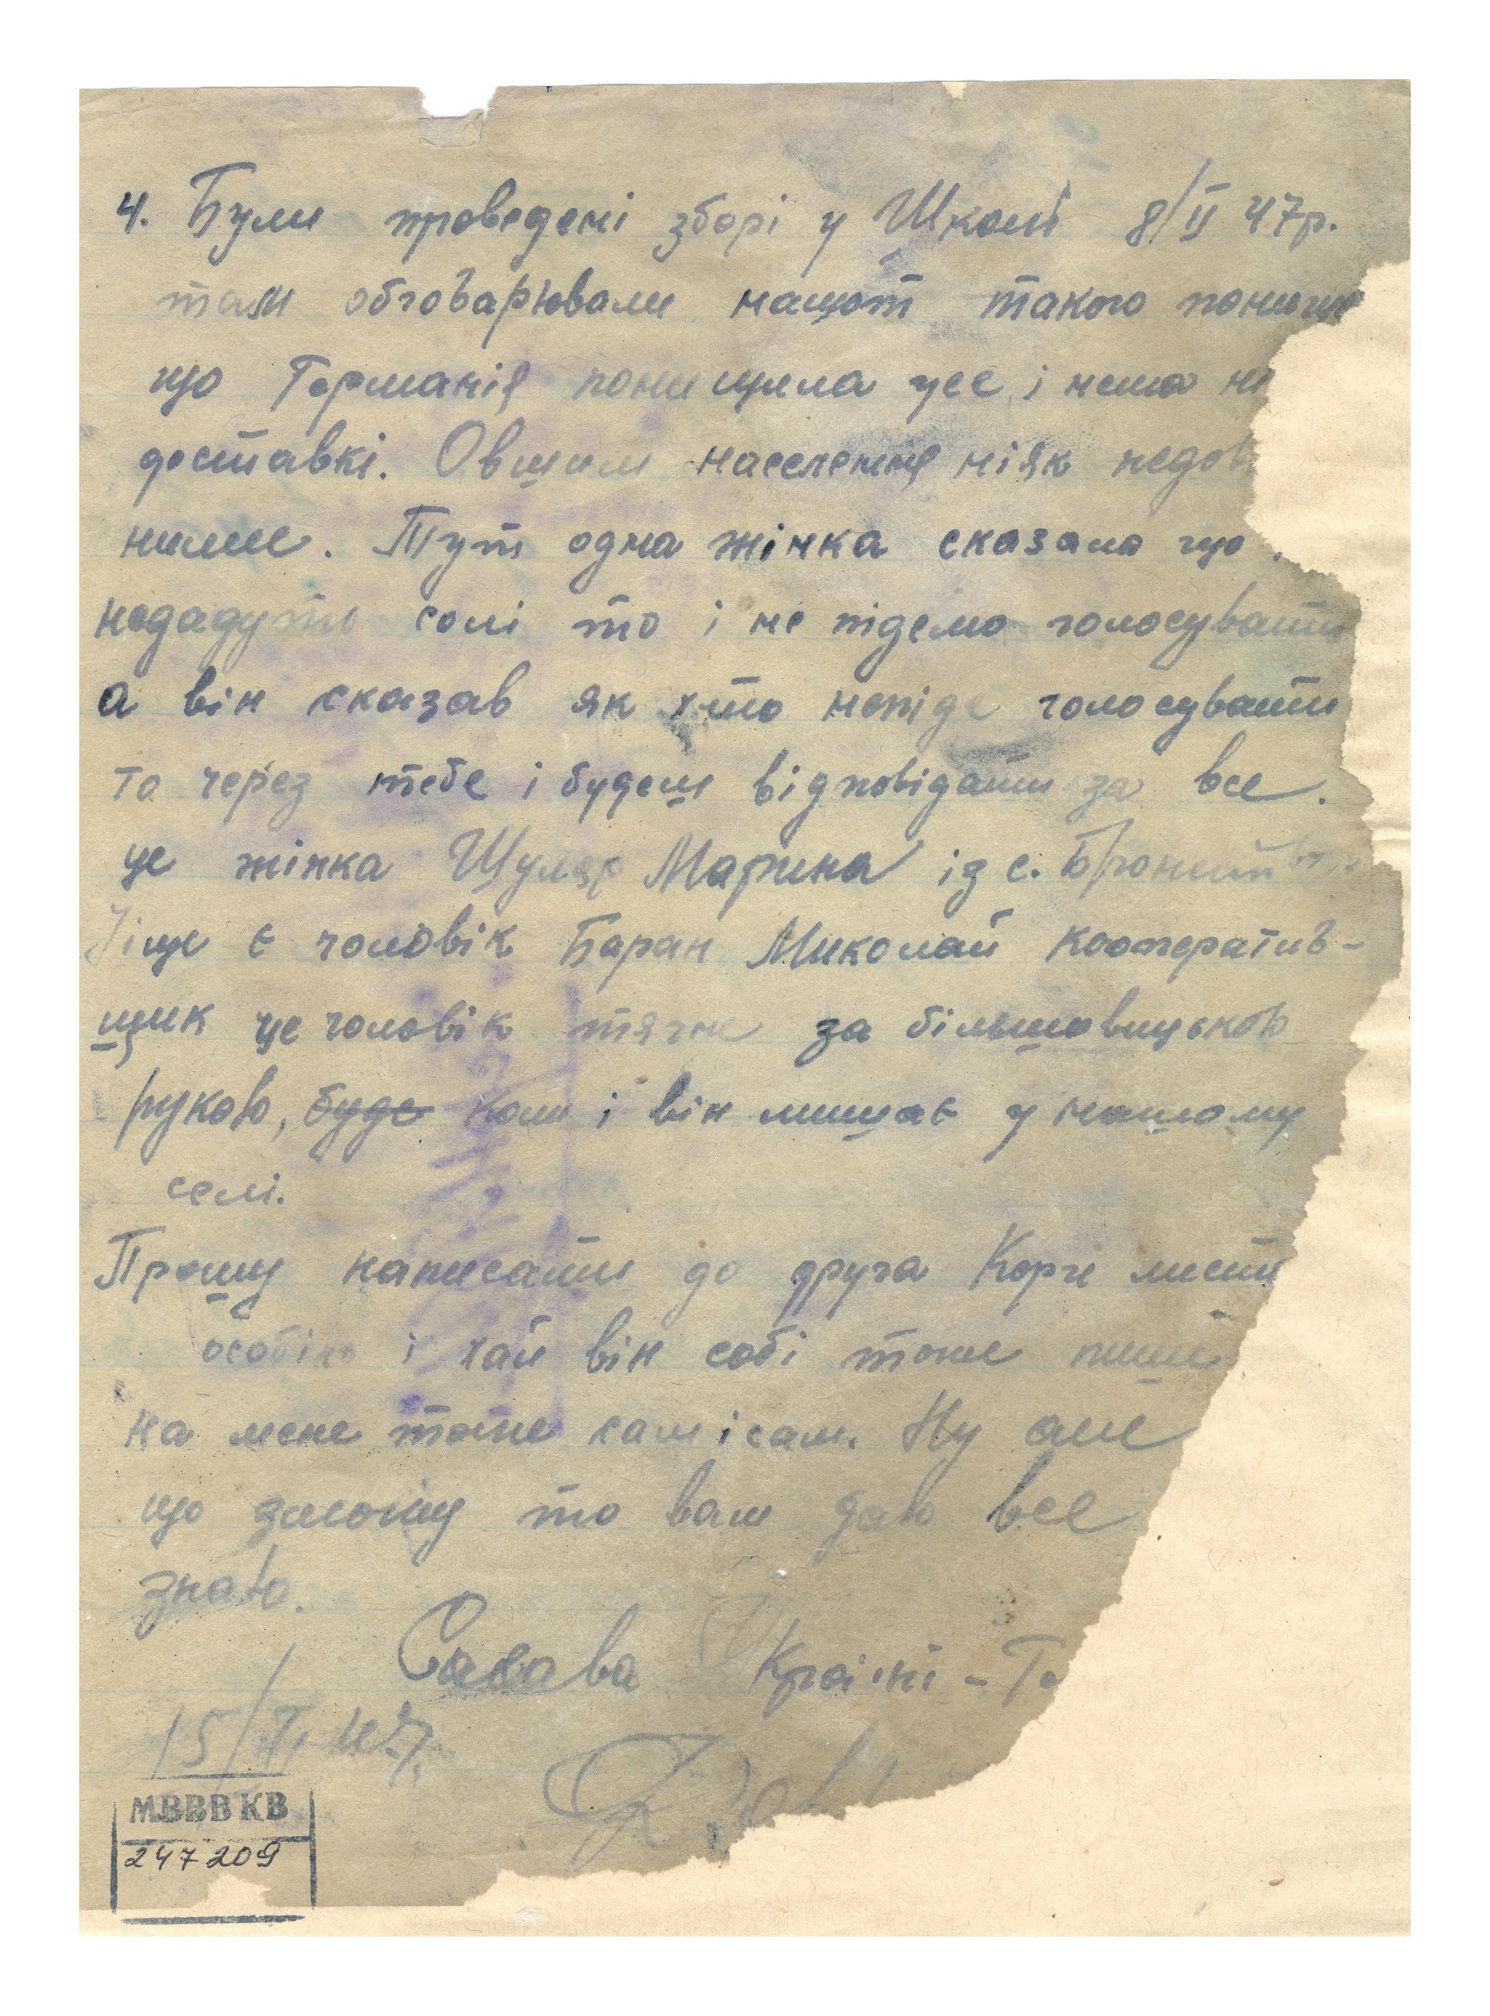 4. Були проведені зборі у Школі 8/II 47р.
там обговарювали нащот такого
що Германія понищила усе і нема
доставкі. Овшим населення ніяк
ними. Тут одна жінка сказала що
недадуть солі то і не підемо голосувати
а він сказав як хто непіде голосувати
то через тебе і будеш відповідати за все.
це жінка Шуляр Марина із с.
Іще є чоловік Баран Миколай кооператив-
щик це чоловік тягне за більшовицкою
рукою, буде коли і він мишає у нашому
селі.
Прошу написати до друга Корч
особіно і хай він собі тоже
на мене тоже сам і сам. Ну але
що зможу то вам даю все
знато.
Слава Україні -
15/II 47р.
МВВВ КВ
247209